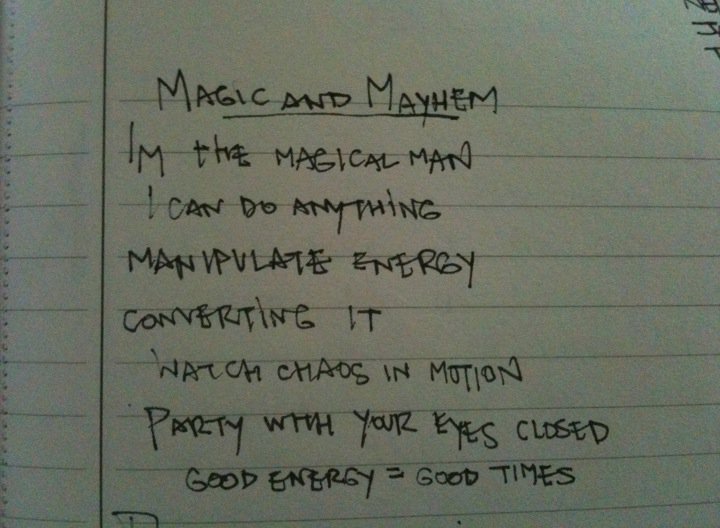 MAGIC AND MAYHEM
IM the MAGICAL MAN
I CAN DO ANYTHING
MANIPULATE ENERGY
CONVERTING IT
WATCH CHAOS IN MOTION
PARTY WITH YOUR EYES CLOSED
GOOD ENERGY = GOOD TIMES